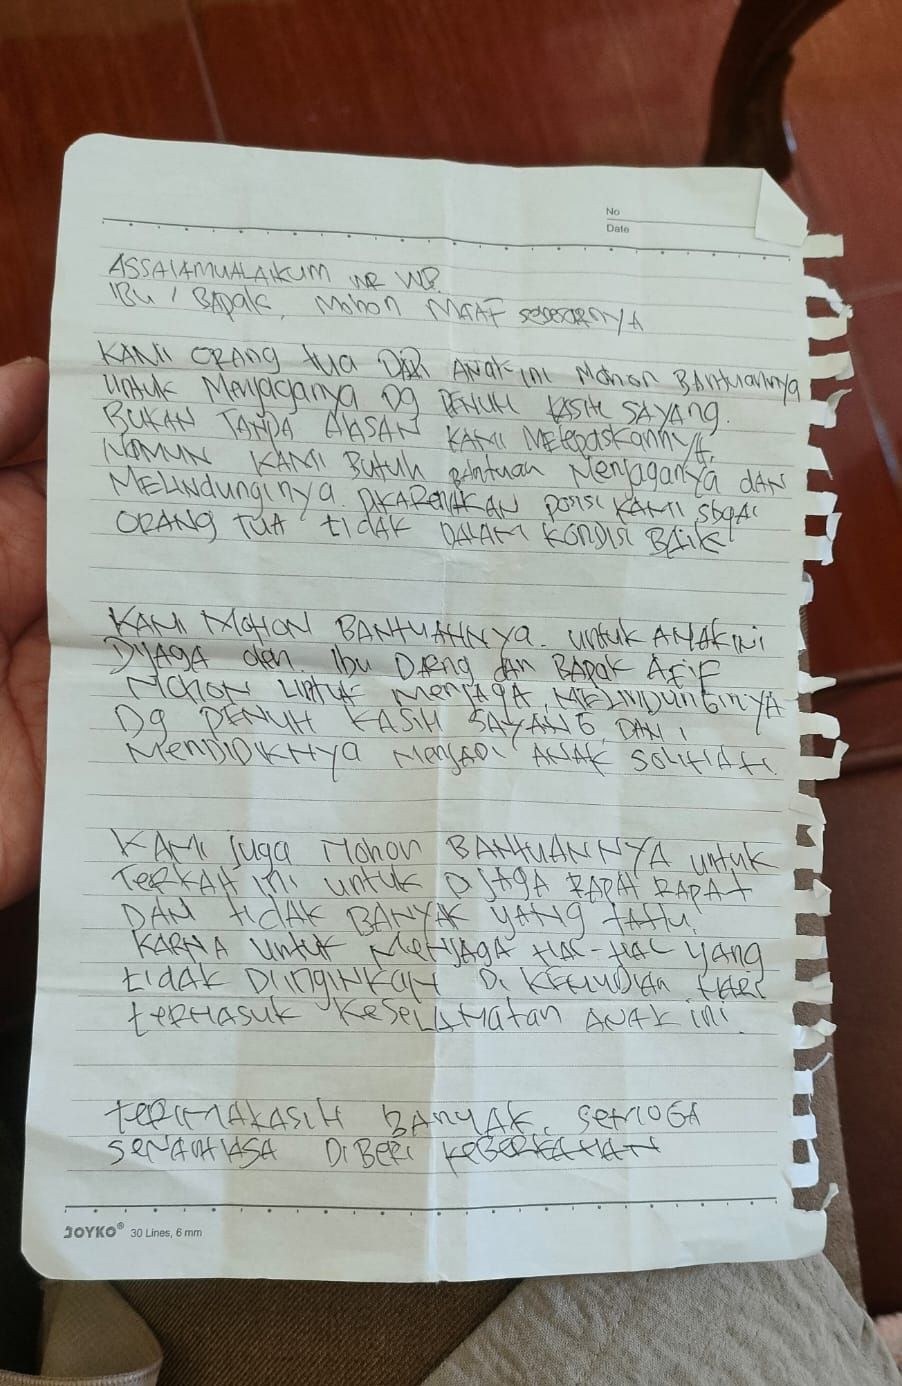 No
Date
ASSALAMUALAIKUM WR WB.
IBU / BAPAK, MOHON MAAF sebesarnya
KAMI ORANG tua DARI ANAK INI MOHON BANTUANNYA
UNTUK MENJAGANYA Dg PENUH KASIH SAYANG.
BUKAN TANPA ALASAN KAMI MELEPASKANNYA.
NAMUN KAMI BUTUH BANTUAN MENJAGANYA DAN
MELINDUNGINYA. DIKARENAKAN POSISI KAMI SBGAI
ORANG TUA tidAK DALAM KONDISI BAIK
KAMI MOHON BANTUANNYA. UNTUK ANAK INI
DIJAGA oleh Ibu DAENG dan BAPAK AFIF
MOHON UNTUK MENJAGA, MELINDUNGINYA
Dg PENUH KASIH SAYANG DAN
MENDIDIKNYA MENJADI ANAK SOLIHAH.
KAMI JUGA MOHON BANTUANNYA UNTUK
TERKAIT INI UNTUK DIJAGA RAPAT RAPAT
DAN tidAK BANYAK YANG TAHU.
KARNA UNTUK MENJAGA HAL-HAL YANG
tidAK DIINGINKAN DI KEMUDIAN HARI
tERMASUK KESELAMATAN ANAK INI.
tERIMAKASIH BANYAK. SEMOGA
SENANTIASA DIBERI KEBERKAHAN
JOYKO® 30 Lines, 6 mm